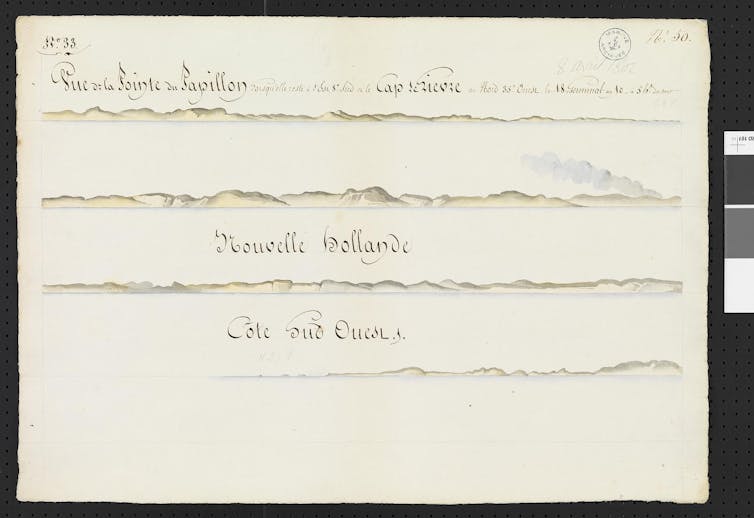 No. 33.
No. 50.
8 avril 1802
Vue de la Pointe du Papillon lorsqu'elle reste à l'Est Sud et le Cap Le Lievre au Nord Ouest le 18 Germinal an 10 à 5h du soir
Nouvelle Hollande
Côte Sud Ouest.